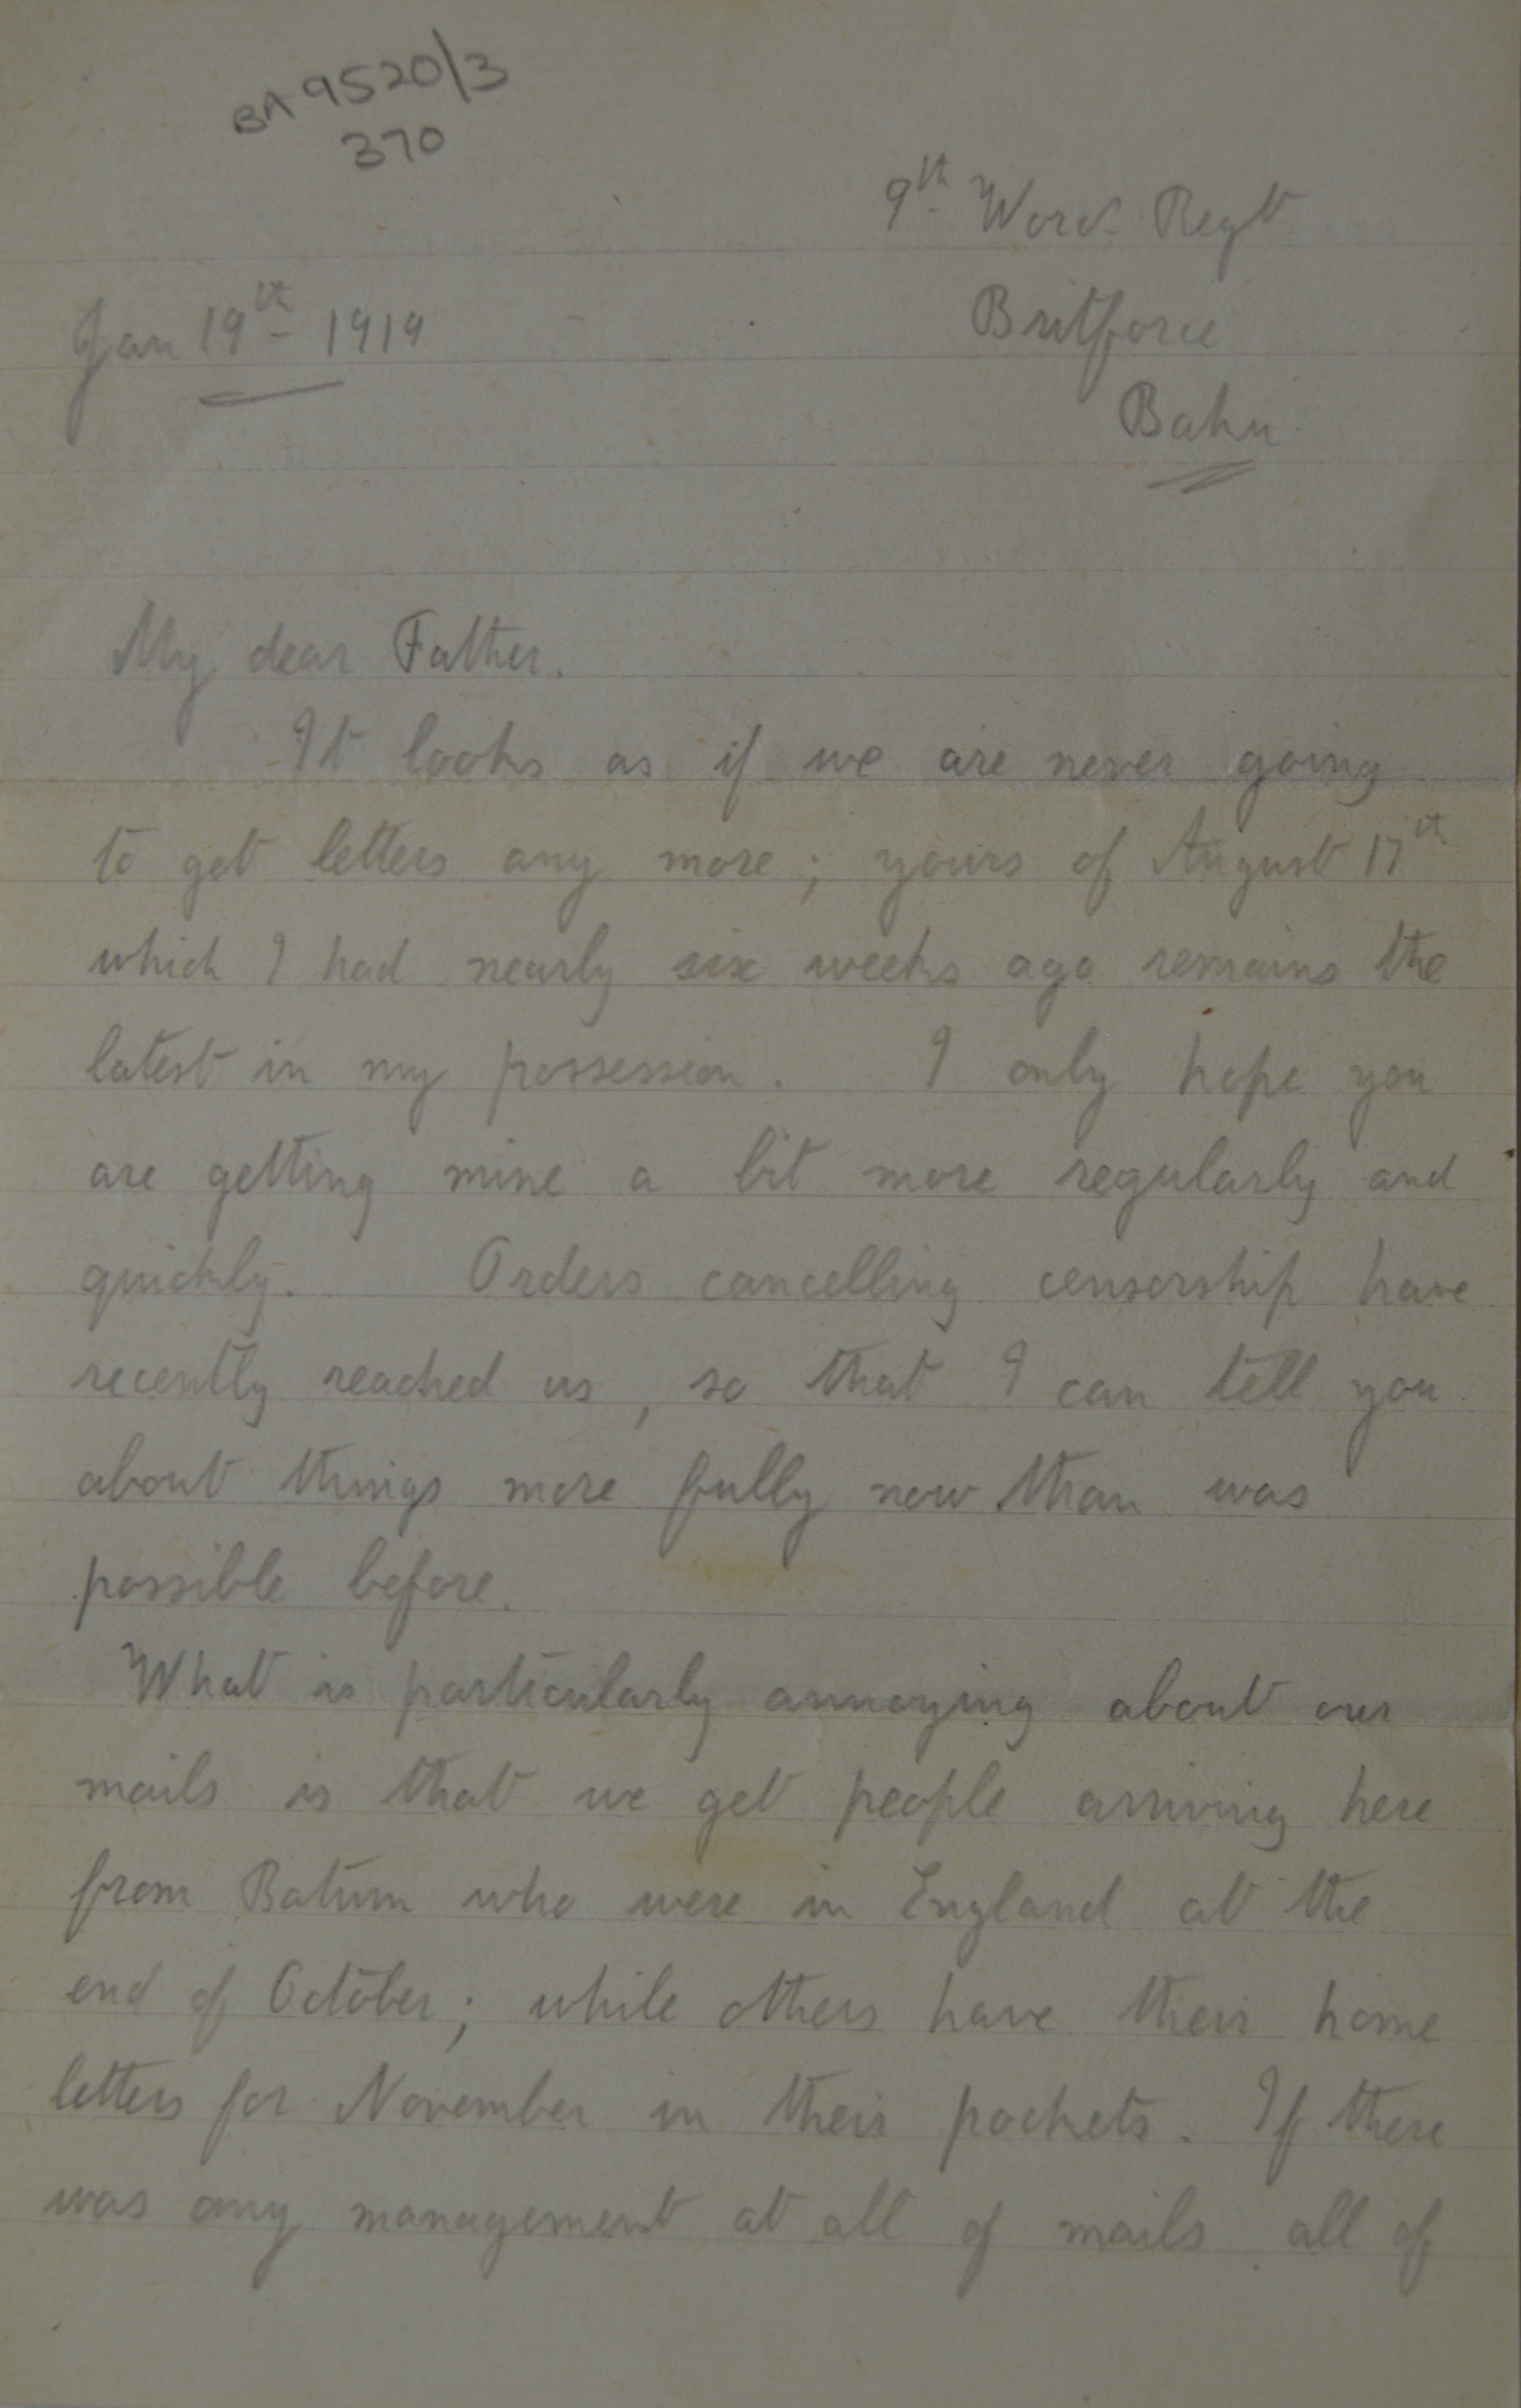 BA 9520/3
370
9th Worc. Regt
Britforce
Jan 19th 1919
Baku.
My dear Father.
It looks as if we are never going
to get letters any more; yours of August 17th
which I had nearly six weeks ago remains the
latest in my possession. I only hope you
are getting mine a bit more regularly and
quickly. Orders cancelling censorship have
recently reached us, so that I can tell you
about things more fully now than was
possible before.
What is particularly annoying about our
mails is that we get people arriving here
from Batum who were in England at the
end of October; while others have their home
letters for November in their pockets. If there
was any management at all of mails all of